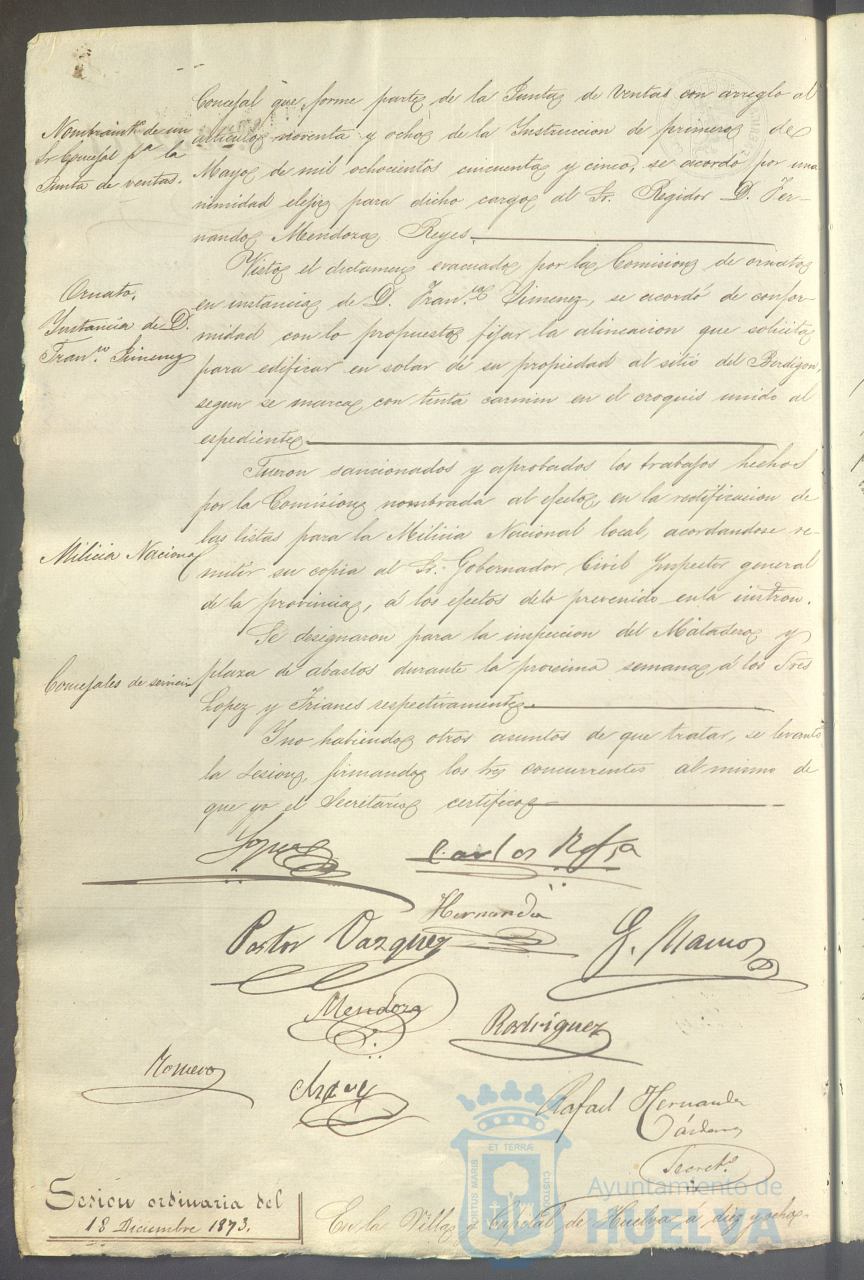 Nombramto. de un
Sr Concejal pa. la
Junta de ventas.
Concejal que forme parte de la Junta de Ventas con arreglo al
articulo noventa y ocho de la Instruccion de primero de
Mayo de mil ochocientos cincuenta y cinco, se acordó por una
nimidad elejir para dicho cargo al Sr. Regidor D. Fer-
nando Mendoza Reyes.
Ornato.
Instancia de D.
Franco. Jimenez
Visto el dictamen evacuado por la Comision de ornato
en instancia de D. Franco. Jimenez, se acordó de confor-
midad con lo propuesto fijar la alineacion que solicita
para edificar en solar de su propiedad al sitio del Berdigon,
segun se marca con tinta carmin en el croquis unido al
espediente
Milicia Nacional
Fueron sancionados y aprobados los trabajos hechos
por la Comision nombrada al efecto, en la rectificacion de
las listas para la Milicia Nacional local, acordandose re-
mitir su copia al Sr. Gobernador Civil Inspector general
de la provincia, á los efectos delo prevenido enla instron.
Concejales de servicio
Se designaron para la inspeccion del Matadero y
plaza de abastos durante la procsima semana, á los Sres
Lopez y Frianes respectivamente
Y no habiendo otros asuntos de que tratar, se levantó
la Sesion, firmando los tres concurrentes al mismo de
que yo el Secretario certifico
Carlos
Hernandez
Pastor Vazquez
G. Ramos
Mendoza
Rodriguez
Romero
Rafael Hernandez
Cárdenas
Secreto.
Sesion ordinaria del
18 Diciembre 1873.
En la Villa y Capital de Huelva á diez y ocho
ET TERRAE
PORTUS MARIS
CUSTODIA
Ayuntamiento de
HUELVA